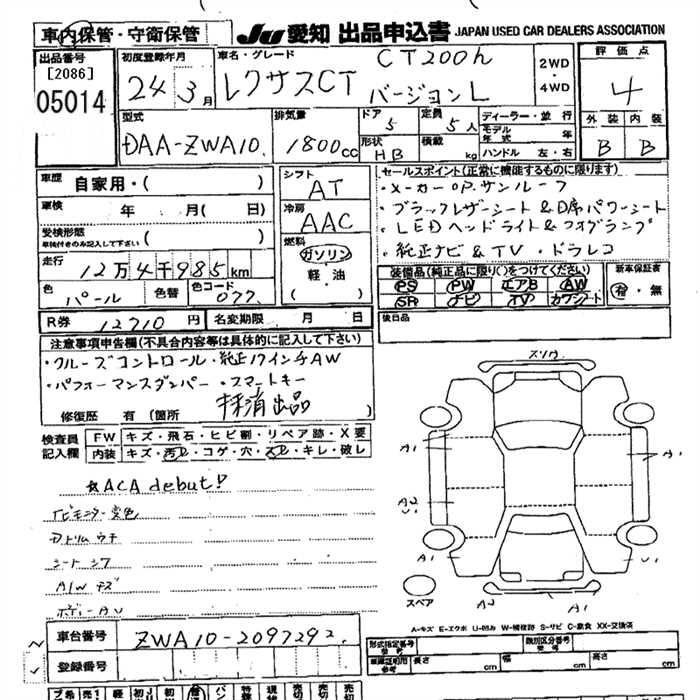 車内保管・守衛保管
JU 愛知 出品申込書 JAPAN USED CAR DEALERS ASSOCIATION
出品番号
[2086]
05014
初度登録年月
24年3月
車名・グレード
CT200h
レクサスCT バージョンL
2WD
・
4WD
評価点
4
外装 内装
B B
型式
DAA-ZWA10
排気量
1800cc
ドア
5
形状
HB
定員
5人
積載
kg
ディーラー・並行
モデル年式 年
ハンドル 左・右
車歴 自家用・( )
車検 年 月( 日)
受検形態
車検付きのみ記入して下さい ( )
走行 12万4千985km
色 パール 色替 色コード 077
シフト
AT
冷房
AAC
燃料
ガソリン
軽・油
( )
セールスポイント(正常に機能するものに限ります)
・メーカーOP.サンルーフ
・ブラックレザーシート&D席パワーシート
・LEDヘッドライト&フォグランプ
・純正ナビ&TV・ドラレコ
装備品(純正品に限り○をつけてください)
PS PW エアB AW
SR ナビ TV カワシート
新車保証書
有・無
R券 12710円 名変期限 月 日
後日品
注意事項申告欄(不具合内容等は具体的に記入して下さい)
・クルーズコントロール・純正17インチAW
・パフォーマンスダンパー・スマートキー
修復歴 有(箇所 抹消出品 )
検査員
記入欄
FW キズ・飛石・ヒビ割・リペア跡・X要
内装 キズ・汚レ・コゲ・穴・スレ・キレ・破レ
☆ACA debut!
ナビモニター変色
Dトリムウチ
シートシワ
A/Wキズ
ボディーAU
スリキズ
A1
A1
A2
U1
A1
U1
スペア
A2
A1
A-キズ E-エクボ U-凹み W-補修跡 S-サビ C-腐食 XX-交換済
車台番号 ZWA10-2097292
登録番号
形式指定番号
類別区分番号
長さ cm 幅 cm 高さ cm